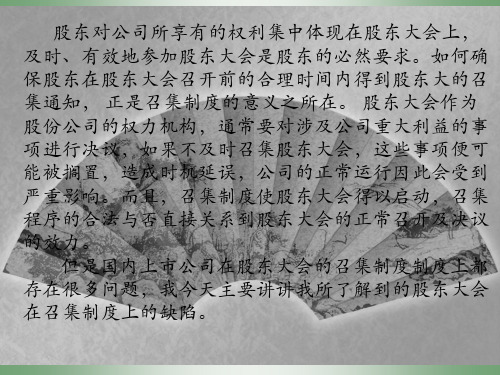 股东对公司所享有的权利集中体现在股东大会上，
及时、有效地参加股东大会是股东的必然要求。如何确
保股东在股东大会召开前的合理时间内得到股东大的召
集通知， 正是召集制度的意义之所在。 股东大会作为
股份公司的权力机构，通常要对涉及公司重大利益的事
项进行决议，如果不及时召集股东大会，这些事项便可
能被搁置，造成时机延误，公司的正常运行因此会受到
严重影响。而且，召集制度使股东大会得以启动，召集
程序的合法与否直接关系到股东大会的正常召开及决议
的效力。
但是国内上市公司在股东大会的召集制度制度上都
存在很多问题，我今天主要讲讲我所了解到的股东大会
在召集制度上的缺陷。